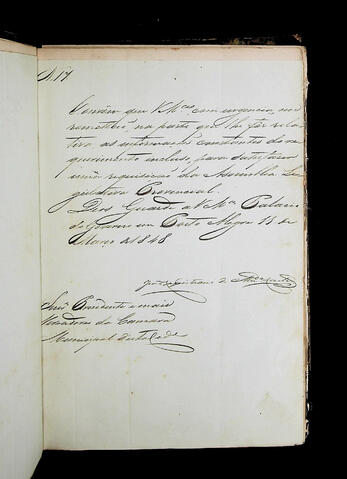 N. 17
Convém que V.Mces com urgencia, me
remettão, na parte que lhe fôr rela-
tiva as informações constantes do re-
querimento incluso, para satisfazer
uma requisição da Assemblea Le-
gislativa Provincial.
Deos Guarde a V.Mces Palacio
do Governo em Porto Alegre 15 de
Março de 1848
Snrs Presidente e mais
Vereadores da Camara
Municipal desta Cide